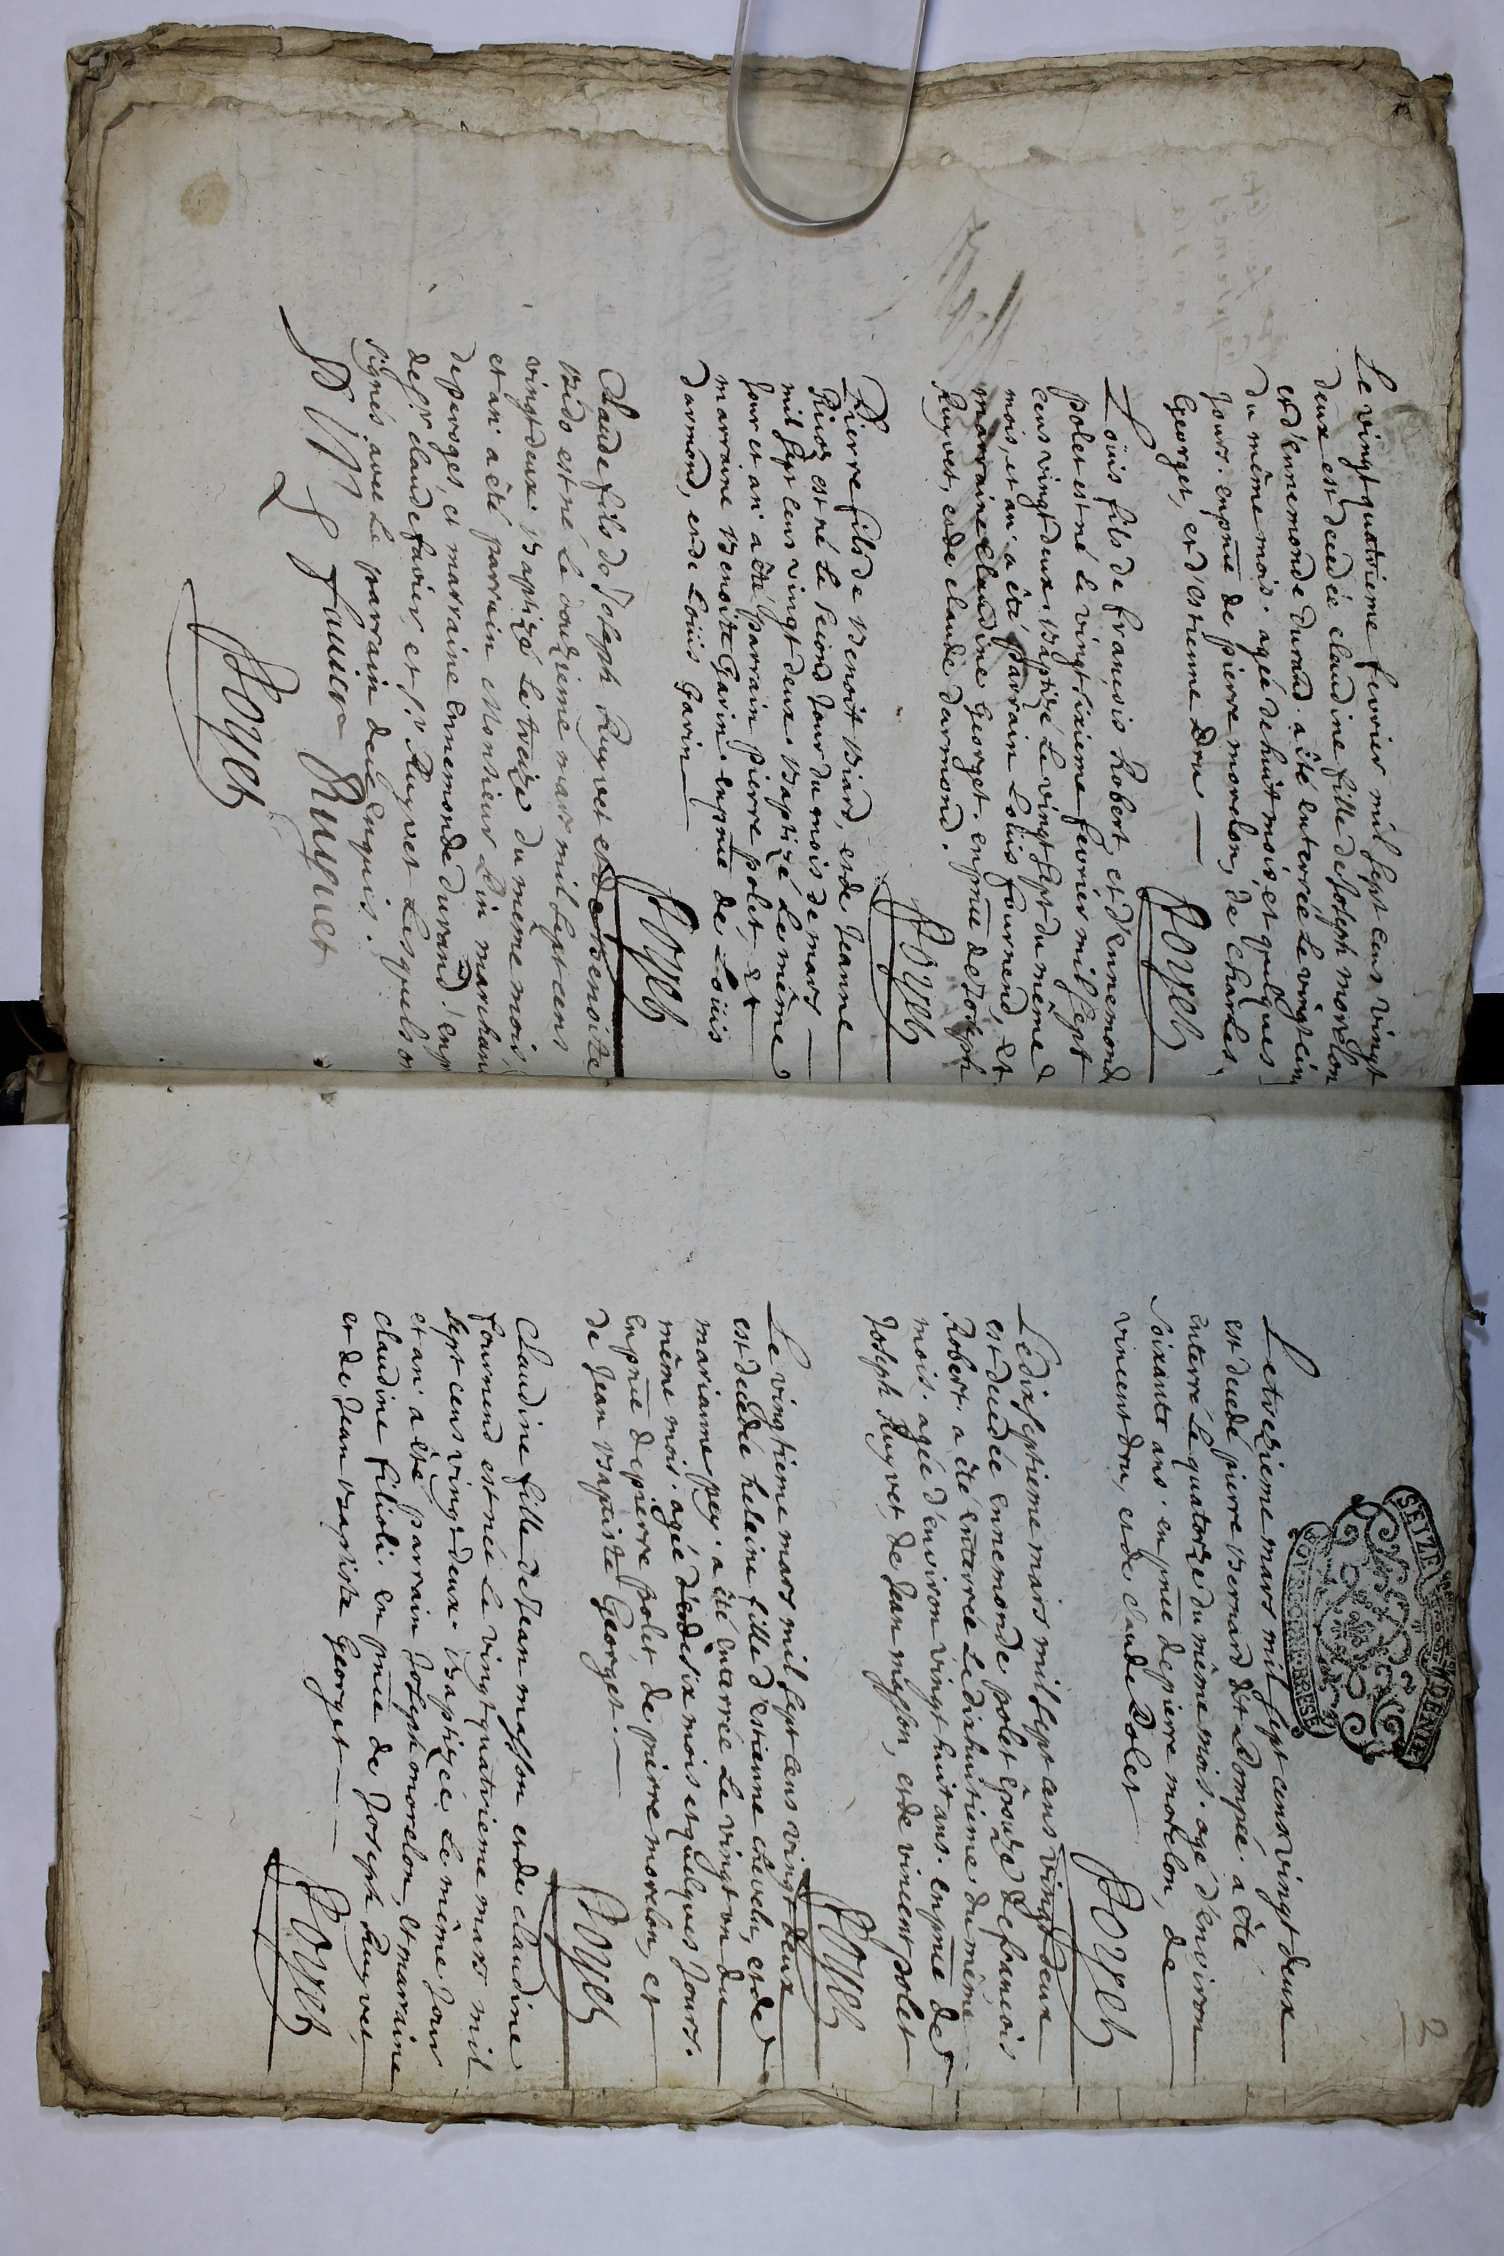 Le vingt quatrieme fevrier mil sept cens vingt
deux est decedée claudine fille de Joseph morelon
et d'ennemonde durand. a été enterrée le vingt cin
du même mois. agée de huit mois, et quelques
Jours. en pñce de pierre morelon, de Charles
Georget, et d'estienne Dru
Poyet
Loüis fils de françois Robert, et d'ennemonde
polet est né le vingt sixieme fevrier mil sept
cens vingt deux. Baptizé le vingt sept du même
mois, et an. a été parrain Loüis fournend, et
marraine Claudine Georget. en pñce de Joseph
Ruyvet, et de claude darmond.
Poyet
Pierre fils de Benoit Biard, et de Jeanne
est né le second Jour du mois de mars
mil sept cens vingt deux. Baptizé le même
Jour et an. a été parrain pierre polet et
marraine Benoite Gavin. en pñce de Loüis
darmond, et de Loüis Gavin
Poyet
Claude fils de Joseph Ruyvet et de Benoite
Bido est né le douzieme mars mil sept cens
vingt deux. Baptizé le treize du même mois,
et an. a été parrain Monsieur marchand
et marraine Ennemonde durand. en p
de sr claude favier, et sr Ruyvet Lesquels on
signés avec le parrain de ce enquis.
favier Ruyuet
Poyet
2
SEIZE DENE
Le trezieme mars mil sept cens vingt deux
est decedé pierre Bernard dit Pompée. a été
enterré le quatorze du même mois. agé d'environ
soixante ans. en pñce de pierre morelon, de
vincent dru, et de claude Polet
Poyet
Le dix septieme mars mil sept cens vingt deux
est decedée ennemonde polet épouze de francois
Robert. a été enterrée le dixhuitieme du même
mois. agée d'environ vingt huit ans. en pñce de
Joseph Ruyvet, de Jean masson, et de vincent polet
Poyet
Le vingtieme mars mil sept cens vingt deux
est decedée helaine fille d'estienne chevelu, et de
marianne pey. a été enterrée le vingt un du
même mois. agée de dix mois et quelques Jours.
en pñce de pierre Polet, de pierre morelon, et
de Jean Baptiste Georget.
Poyet
Claudine fille de Jean masson et de claudine
fournend est née le vingt quatrieme mars mil
sept cens vingt deux. Baptizée le même Jour
et an. a été parrain Joseph morelon, et marraine
claudine filioli. en pñce de Joseph Ruyvet,
et de Jean Baptiste Georget
Poyet